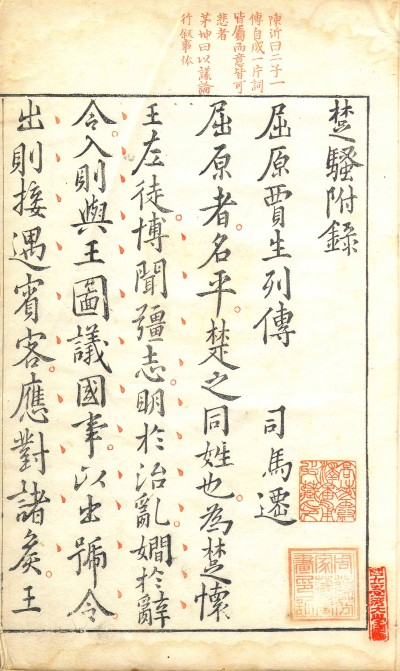 陳沂曰二子一
傳自成一片詞
皆屬而意皆可
悲者
茅坤曰以議論
行敘事依
楚騷附錄
屈原賈生列傳 司馬遷
屈原者名平楚之同姓也為楚懷
王左徒博聞彊志明於治亂嫺於辭
令入則與王圖議國事以出號令
出則接遇賓客應對諸矦王